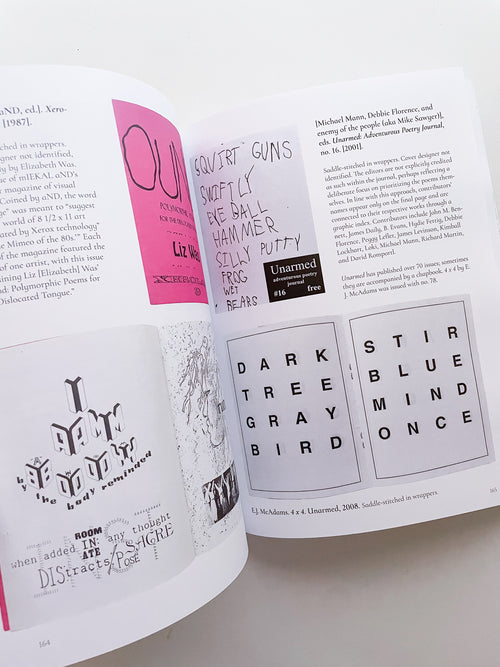 aND, ed.]. Xero-
[1987].
tched in wrappers.
gner not identified,
ly by Elizabeth Was.
ue of mIEKAL aND's
r magazine of visual
Coined by aND, the word
ge" was meant to "suggest
world of 8 1/2 x 11 art
aced by Xerox technology"
e Mimeo of the 80s.'" Each
of the magazine featured the
of one artist, with this issue
ring Liz [Elizabeth] Was'
d: Polymorphic Poems for
Dislocated Tongue."
OUN
POLYMORPHIC
FOR THE DISLOCATED
Liz Was
I
AMM
by the body reminded
when added ROOM IN ATE any thought
DIStracts POSE SACRE
164
SQUIRT GUNS
SWIFTLY
EYE BALL
HAMMER
SILLY PUTTY
FROG
WET
BEARS
Unarmed
adventurous poetry
journal
#16 free
[Michael Mann, Debbie Florence, and
enemy of the people (aka Mike Sawyer)],
eds. Unarmed: Adventurous Poetry Journal,
no. 16. [2001].
Saddle-stitched in wrappers. Cover designer not
identified. The editors are not explicitly credited
as such within the journal, perhaps reflecting a
deliberate focus on prioritizing the poems them-
selves. In line with this approach, contributors'
names appear only on the final page and are
connected to their respective works through a
graphic index. Contributors include John M. Ben-
nett, James Daily, B. Evans, Hylle Fertig, Debbie
Florence, Peggy Lefler, James Levinson, Kimball
Lockhart, Loki, Michael Mann, Richard Martin,
and David Rompard.
Unarmed has published over 70 issues; sometimes
they are accompanied by a chapbook. 4 x 4 by E.
J. McAdams was issued with no. 78.
DARK
TREE
GRAY
BIRD
STIR
BLUE
MIND
ONCE
E.J. McAdams. 4 x 4. Unarmed, 2008. Saddle-stitched in wrappers.
165